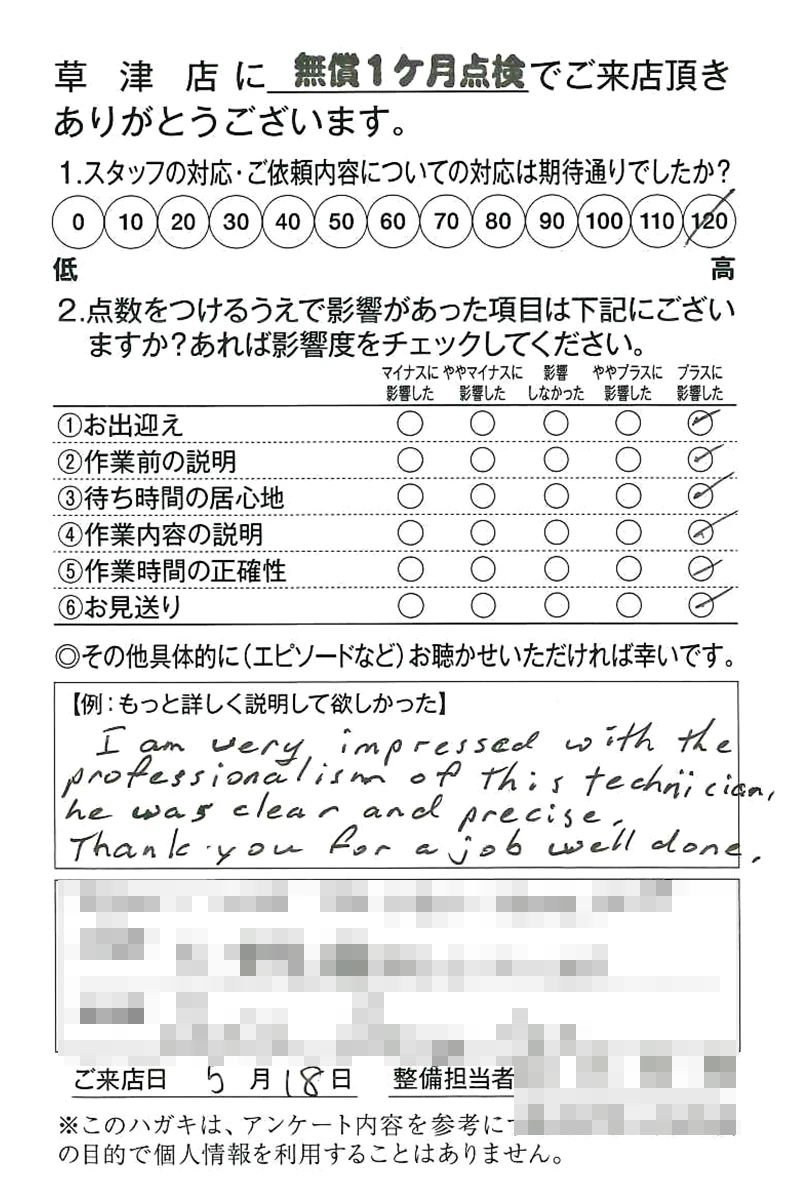 草津店に 無償1ケ月点検でご来店頂き
ありがとうございます。
1.スタッフの対応・ご依頼内容についての対応は期待通りでしたか?
0 10 20 30 40 50 60 70 80 90 100 110 120
低 高
2.点数をつけるうえで影響があった項目は下記にござい
ますか?あれば影響度をチェックしてください。
マイナスに ややマイナスに 影響 ややプラスに プラスに
影響した 影響した しなかった 影響した 影響した
①お出迎え
②作業前の説明
③待ち時間の居心地
④作業内容の説明
⑤作業時間の正確性
⑥お見送り
◎その他具体的に(エピソードなど)お聴かせいただければ幸いです。
【例:もっと詳しく説明して欲しかった】
I am very impressed with the
professionalism of this technician,
he was clear and precise.
Thank you for a job well done.
ご来店日 5月18日 整備担当者
※このハガキは、アンケート内容を参考に
の目的で個人情報を利用することはありません。